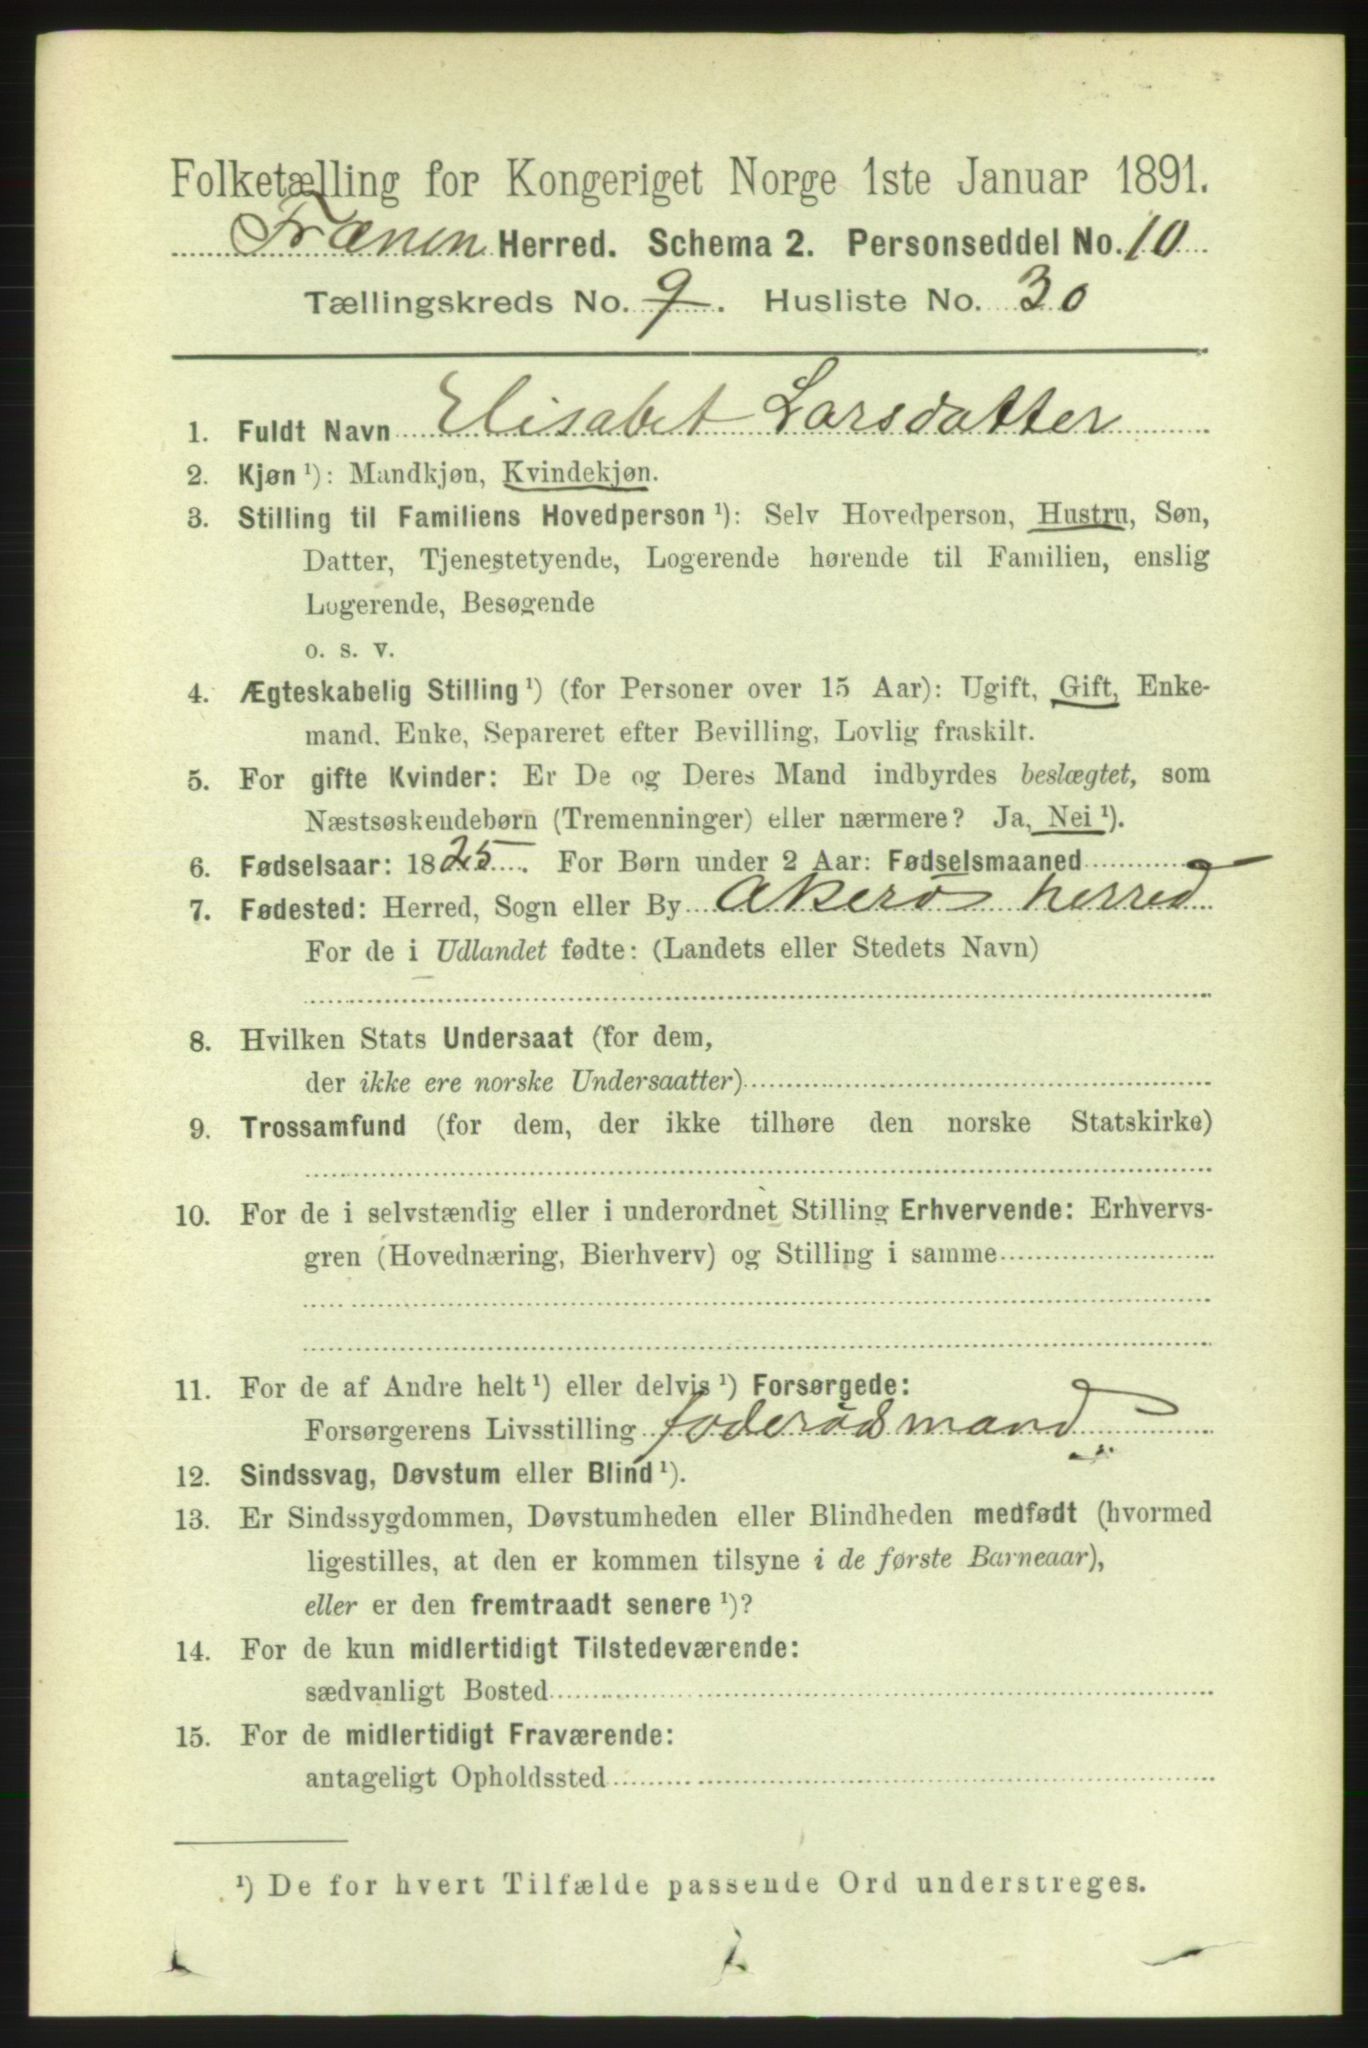 Folketælling for Kongeriget Norge 1ste Januar 1891.
Frænen Herred. Schema 2. Personseddel No. 10
Tællingskreds No. 9. Husliste No. 30
1. Fuldt Navn Elisabet Larsdatter
2. Kjøn ¹): Mandkjøn, Kvindekjøn.
3. Stilling til Familiens Hovedperson ¹): Selv Hovedperson, Hustru, Søn,
Datter, Tjenestetyende, Logerende hørende til Familien, enslig
Logerende, Besøgende
o. s. v.
4. Ægteskabelig Stilling ¹) (for Personer over 15 Aar): Ugift, Gift, Enke-
mand, Enke, Separeret efter Bevilling, Lovlig fraskilt.
5. For gifte Kvinder: Er De og Deres Mand indbyrdes beslægtet, som
Næstsøskendebørn (Tremenninger) eller nærmere? Ja, Nei ¹).
6. Fødselsaar: 1825. For Børn under 2 Aar: Fødselsmaaned
7. Fødested: Herred, Sogn eller By Akerø herred
For de i Udlandet fødte: (Landets eller Stedets Navn)
8. Hvilken Stats Undersaat (for dem,
der ikke ere norske Undersaatter)
9. Trossamfund (for dem, der ikke tilhøre den norske Statskirke)
10. For de i selvstændig eller i underordnet Stilling Erhvervende: Erhvervs-
gren (Hovednæring, Bierhverv) og Stilling i samme
11. For de af Andre helt ¹) eller delvis ¹) Forsørgede:
Forsørgerens Livsstilling foderådsmand
12. Sindssvag, Døvstum eller Blind ¹).
13. Er Sindssygdommen, Døvstumheden eller Blindheden medfødt (hvormed
ligestilles, at den er kommen tilsyne i de første Barneaar),
eller er den fremtraadt senere ¹)?
14. For de kun midlertidigt Tilstedeværende:
sædvanligt Bosted
15. For de midlertidigt Fraværende:
antageligt Opholdssted
¹) De for hvert Tilfælde passende Ord understreges.